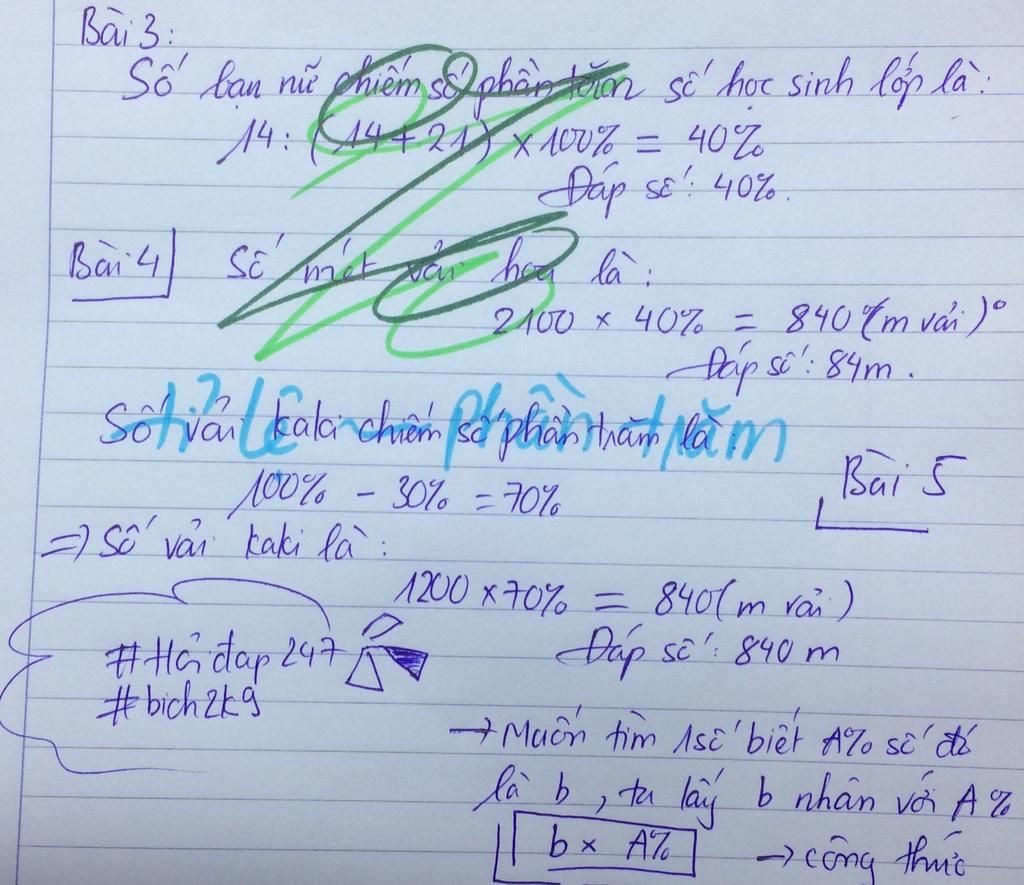 Bài 3:
Số bạn nữ chiếm số phần trăm số học sinh lớp là:
14 : (14 + 21) × 100% = 40%
Đáp số: 40%.
Bài 4 Số mét vải hoa là:
2100 × 40% = 840 (m vải)
Đáp số: 84m.
tỉ lệ phần trăm
Số vải kaki chiếm số phần trăm là:
Bài 5
100% - 30% = 70%
=> Số vải kaki là:
1200 × 70% = 840 (m vải)
Đáp số: 840 m
#Hỏi đap 247
#bich2k9
→ Muốn tìm 1 số biết A% số đó
là b, ta lấy b nhân với A%
b × A% → công thức